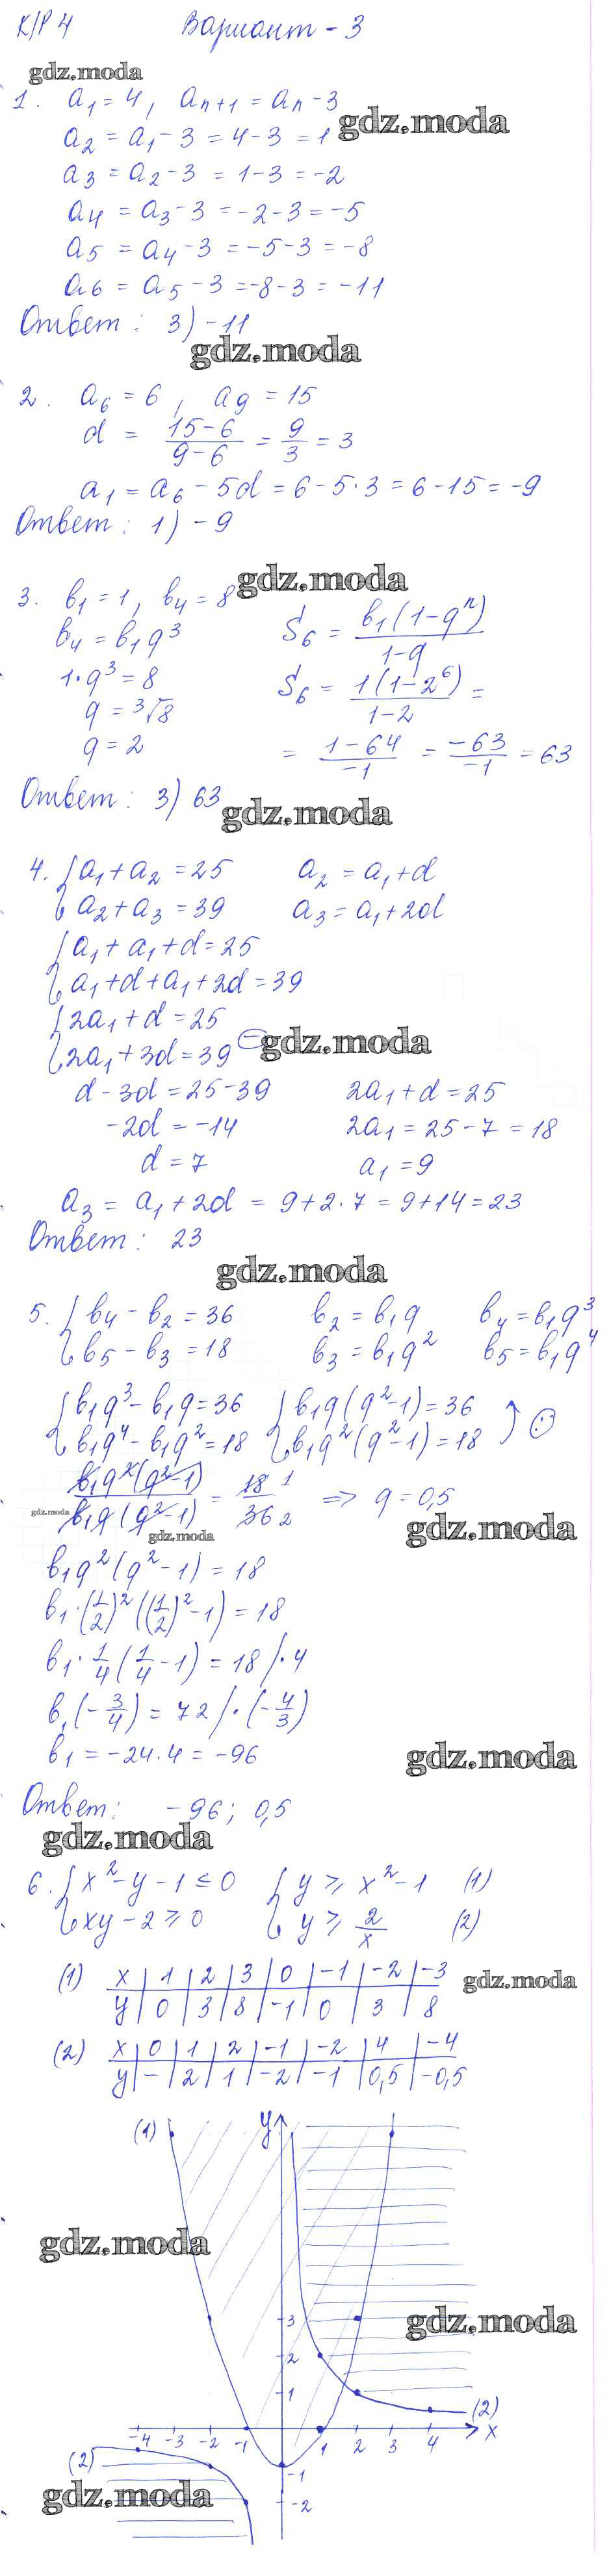 К/Р 4 Вариант - 3
gdz.moda
1. a₁ = 4, aₙ₊₁ = aₙ - 3
gdz.moda
a₂ = a₁ - 3 = 4 - 3 = 1
a₃ = a₂ - 3 = 1 - 3 = -2
a₄ = a₃ - 3 = -2 - 3 = -5
a₅ = a₄ - 3 = -5 - 3 = -8
a₆ = a₅ - 3 = -8 - 3 = -11
Ответ: 3) -11
gdz.moda
2. a₆ = 6, a₉ = 15
d = (15 - 6)/(9 - 6) = 9/3 = 3
a₁ = a₆ - 5d = 6 - 5·3 = 6 - 15 = -9
Ответ: 1) -9
gdz.moda
3. b₁ = 1, b₄ = 8
b₄ = b₁q³ S₆ = b₁(1-qⁿ)/(1-q)
1·q³ = 8 S₆ = 1(1-2⁶)/(1-2) =
q = ³√8
q = 2 = (1-64)/(-1) = -63/-1 = 63
Ответ: 3) 63
gdz.moda
4. { a₁ + a₂ = 25 a₂ = a₁ + d
a₂ + a₃ = 39 a₃ = a₁ + 2d
{ a₁ + a₁ + d = 25
a₁ + d + a₁ + 2d = 39
{ 2a₁ + d = 25
2a₁ + 3d = 39 ⊖
gdz.moda
d - 3d = 25 - 39 2a₁ + d = 25
-2d = -14 2a₁ = 25 - 7 = 18
d = 7 a₁ = 9
a₃ = a₁ + 2d = 9 + 2·7 = 9 + 14 = 23
Ответ: 23
gdz.moda
5. { b₄ - b₂ = 36 b₂ = b₁q b₄ = b₁q³
b₅ - b₃ = 18 b₃ = b₁q² b₅ = b₁q⁴
{ b₁q³ - b₁q = 36 { b₁q(q²-1) = 36
b₁q⁴ - b₁q² = 18 b₁q²(q²-1) = 18 ↑ :
b₁q²(q²-1)/b₁q(q²-1) = 18/36 1/2 => q = 0,5
gdz.moda
gdz.moda
gdz.moda
b₁q²(q²-1) = 18
b₁·(1/2)²((1/2)²-1) = 18
b₁·1/4(1/4 - 1) = 18 /·4
b₁(-3/4) = 72 /·(-4/3)
b₁ = -24·4 = -96
gdz.moda
Ответ: -96; 0,5
gdz.moda
6. { x² - y - 1 ≤ 0 { y ≥ x² - 1 (1)
xy - 2 ≥ 0 y ≥ 2/x (2)
(1) x | 1 | 2 | 3 | 0 | -1 | -2 | -3
gdz.moda
y | 0 | 3 | 8 | -1 | 0 | 3 | 8
(2) x | 0 | 1 | 2 | -1 | -2 | 4 | -4
y | - | 2 | 1 | -2 | -1 | 0,5 | -0,5
(1) y
gdz.moda
3
gdz.moda
2
1
(2)
-4 -3 -2 -1 1 2 3 4 x
(2)
-1
gdz.moda
-2